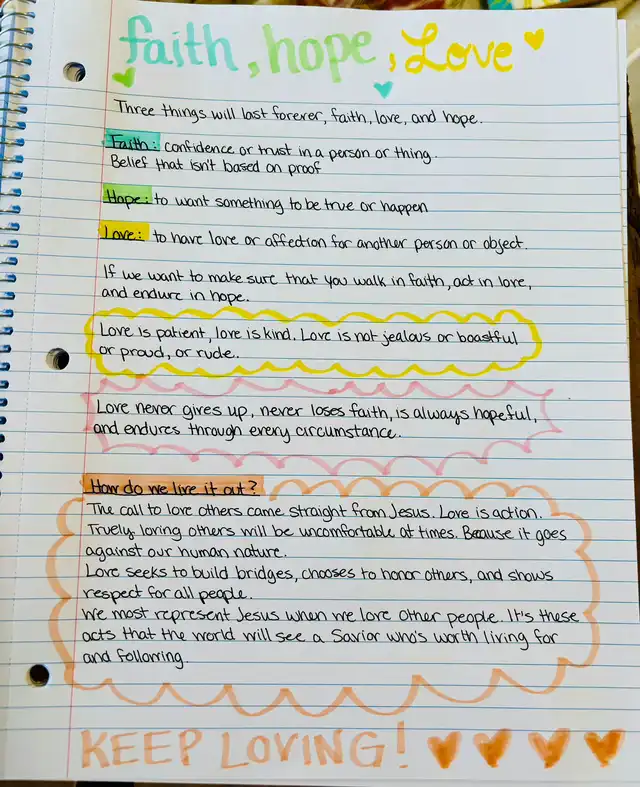 faith, hope, Love
Three things will last forever, faith, love, and hope.
Faith: confidence or trust in a person or thing.
Belief that isn't based on proof
Hope: to want something to be true or happen
Love: to have love or affection for another person or object.
If we want to make sure that you walk in faith, act in love,
and endure in hope.
Love is patient, love is kind. Love is not jealous or boastful
or proud, or rude..
Love never gives up, never loses faith, is always hopeful,
and endures through every circumstance.
How do we live it out?
The call to love others came straight from Jesus. Love is action.
Truely loving others will be uncomfortable at times. Because it goes
against our human nature.
Love seeks to build bridges, chooses to honor others, and shows
respect for all people.
We most represent Jesus when we love other people. It's these
acts that the world will see a Savior who's worth living for
and following.
KEEP LOVING!